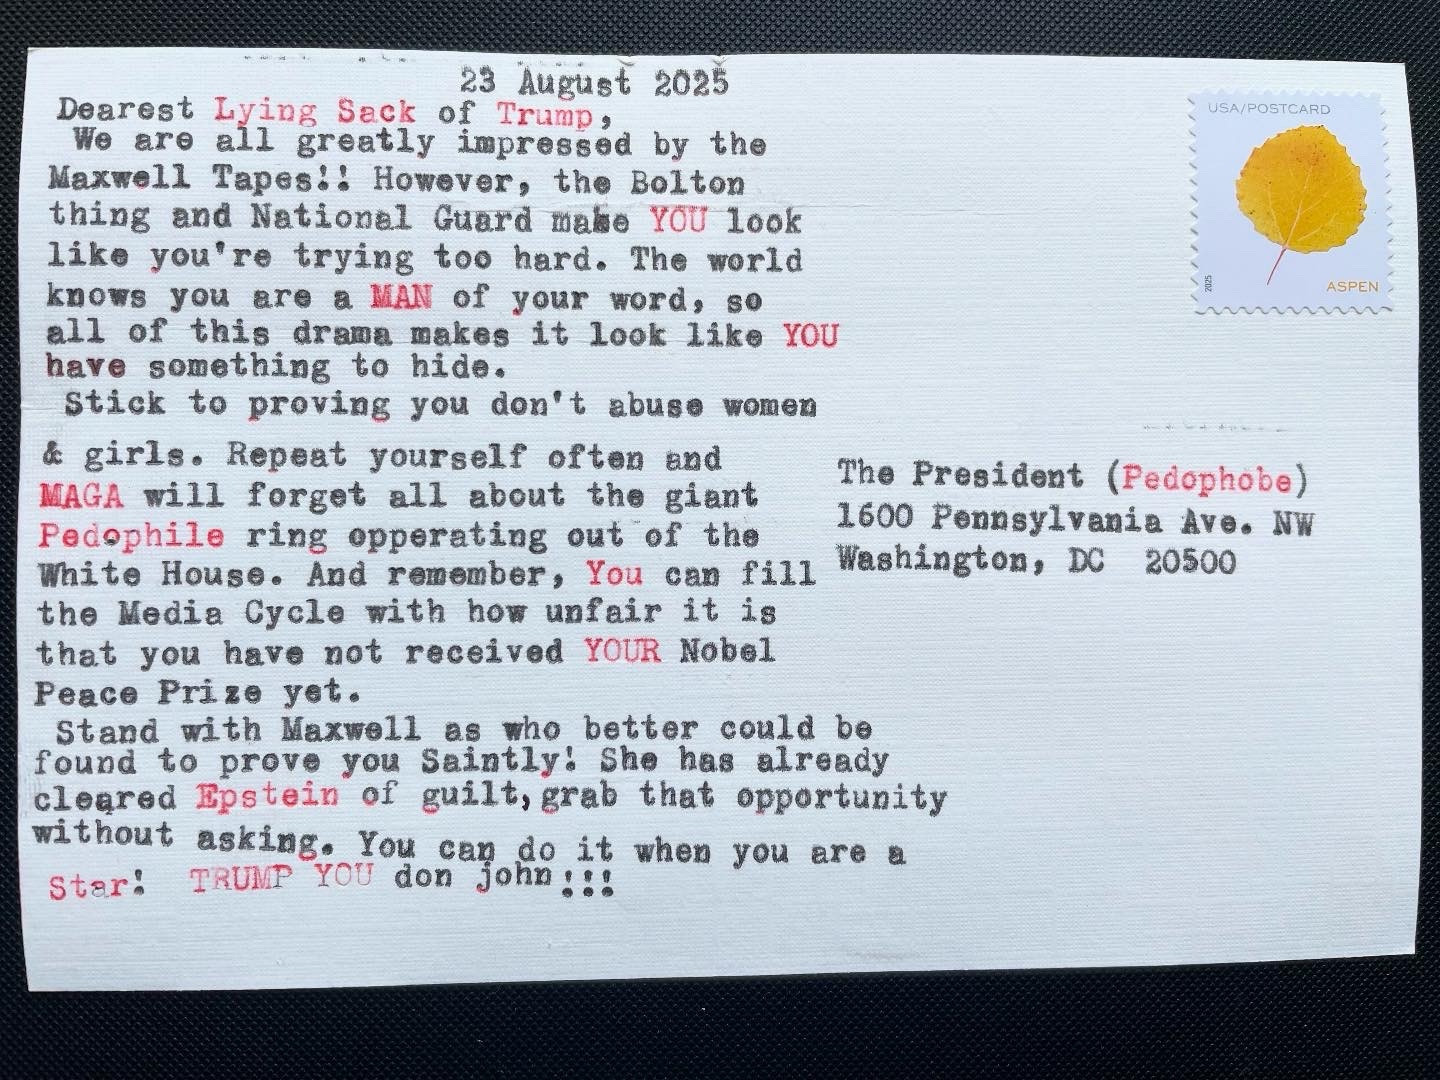 23 August 2025
Dearest Lying Sack of Trump,
We are all greatly impressed by the
Maxwell Tapes!! However, the Bolton
thing and National Guard make YOU look
like you're trying too hard. The world
knows you are a MAN of your word, so
all of this drama makes it look like YOU
have something to hide.
Stick to proving you don't abuse women
& girls. Repeat yourself often and
MAGA will forget all about the giant
Pedophile ring opperating out of the
White House. And remember, You can fill
the Media Cycle with how unfair it is
that you have not received YOUR Nobel
Peace Prize yet.
Stand with Maxwell as who better could be
found to prove you Saintly! She has already
cleared Epstein of guilt, grab that opportunity
without asking. You can do it when you are a
Star! TRUMP YOU don john!!!
USA/POSTCARD
2025
ASPEN
The President (Pedophobe)
1600 Pennsylvania Ave. NW
Washington, DC 20500